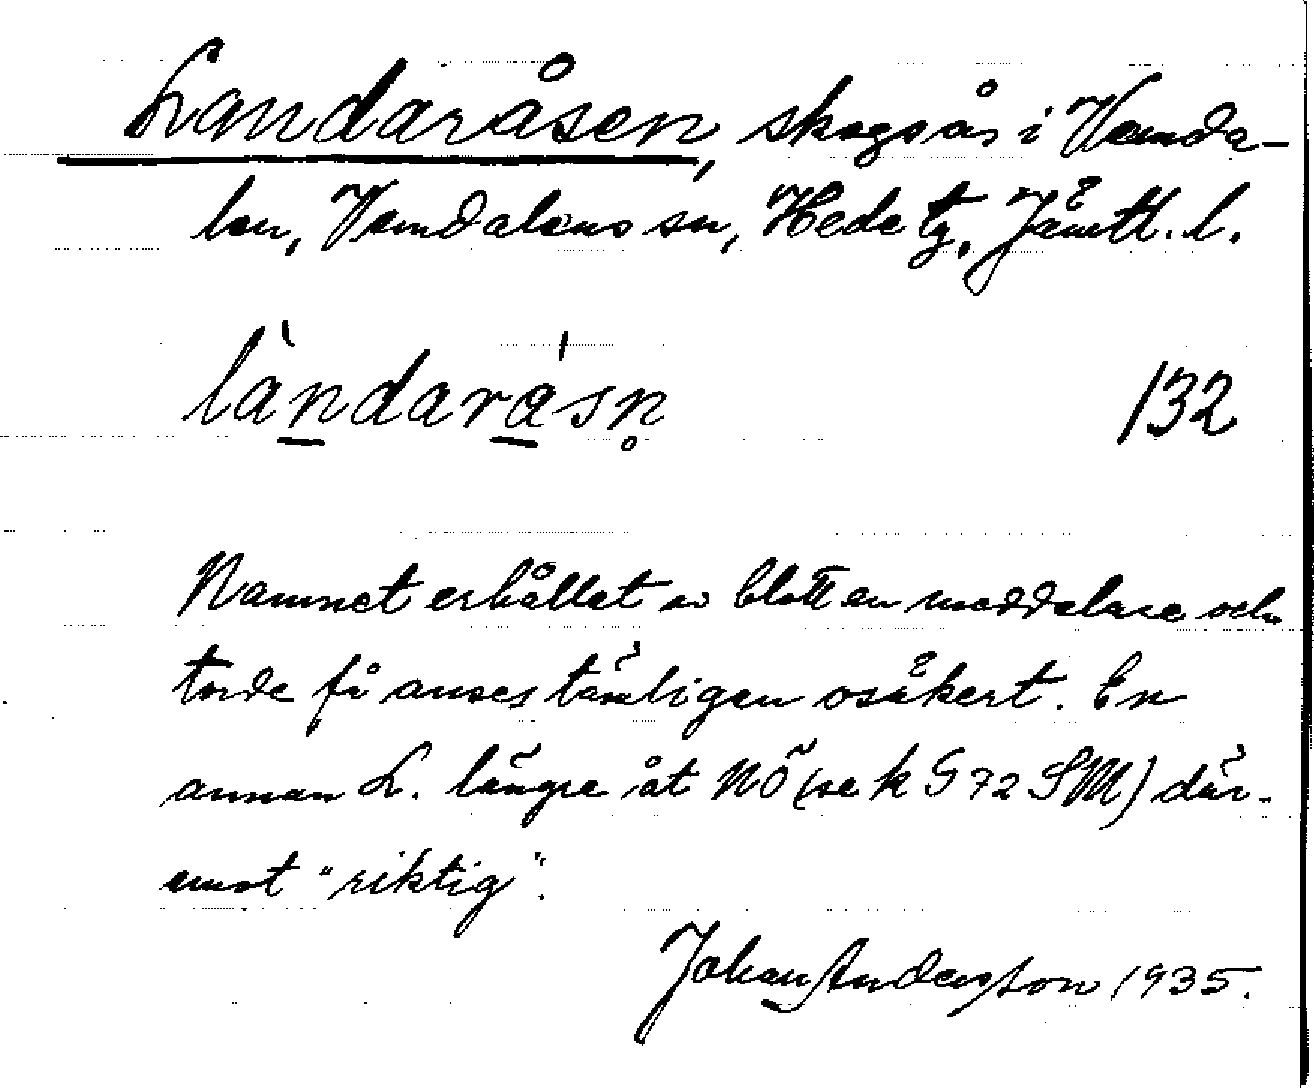 Landaråsen, skogsås i Vemda-
len, Vemdalens sn, Hede tg, Jämtl. l.
làndarásn̥ 132
Namnet erhållet av blott en meddelare och
torde få anses tämligen osäkert. En
annan L. längre åt NÖ (se k S 72 SM) där-
emot "riktig".
Johan Andersson 1935.